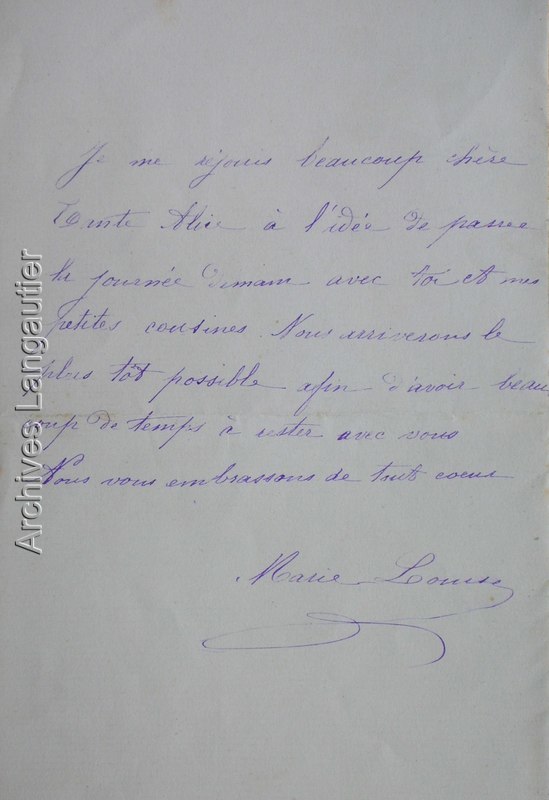 Je me réjouis beaucoup chère
Tante Alice à l'idée de passer
la journée demain avec toi et mes
petites cousines. Nous arriverons le
plus tôt possible afin d'avoir beau
coup de temps à rester avec vous
Nous vous embrassons de tout coeur
Marie Louise
Archives Langautier